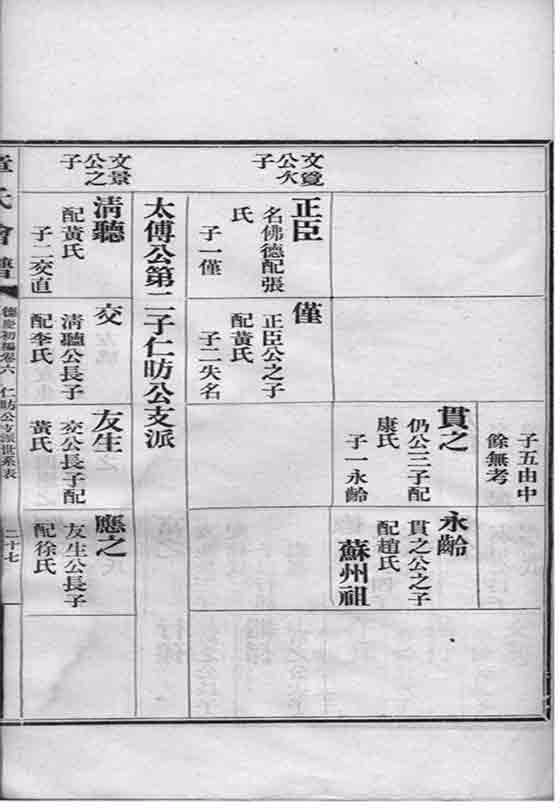 子五由中
餘無考
貫之
仍公三子配
康氏
子一永齡
永齡
貫之公之子
配趙氏
蘇州祖
文
公次
子
正臣
名佛德配張
氏
子一僅
僅
正臣公之子
配黃氏
子二失名
太傅公第二子仁昉公支派
文景
公之
子
清聽
配黃氏
子二交直
交
清聽公長子
配李氏
友生
交公長子配
黃氏
應之
友生公長子
配徐氏
章氏會譜
德慶初編卷六
仁昉公支派世系表
二十七